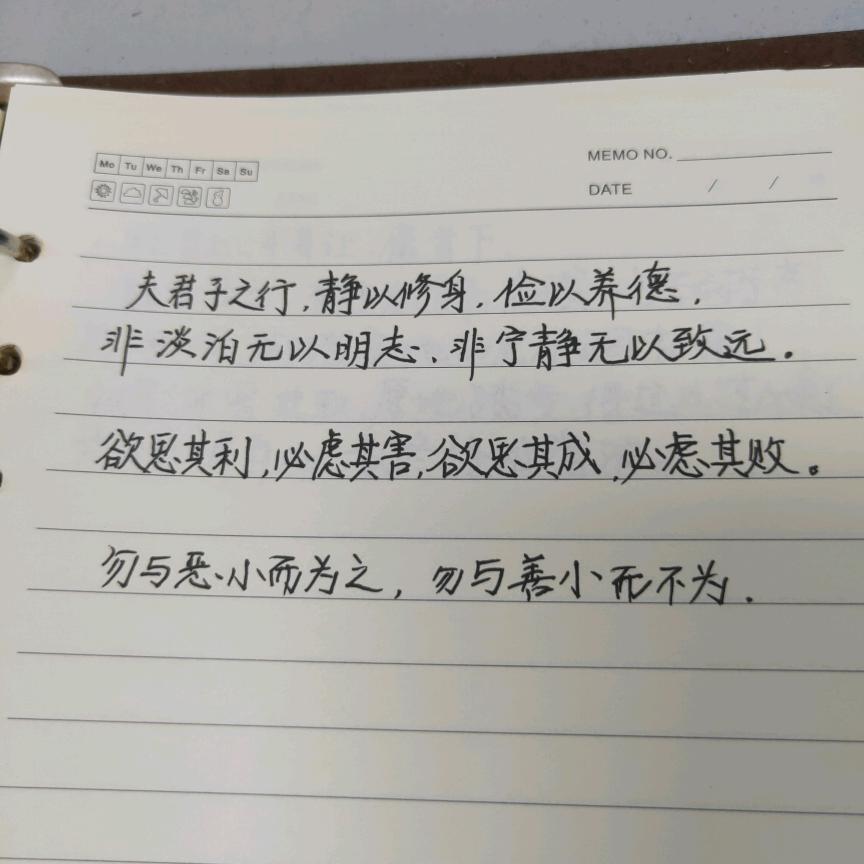 Mo Tu We Th Fr Sa Su
MEMO NO.
DATE / /
夫君子之行,静以修身,俭以养德,
非淡泊无以明志、非宁静无以致远.
欲思其利,必虑其害,欲思其成,必虑其败。
勿与恶小而为之,勿与善小而不为.